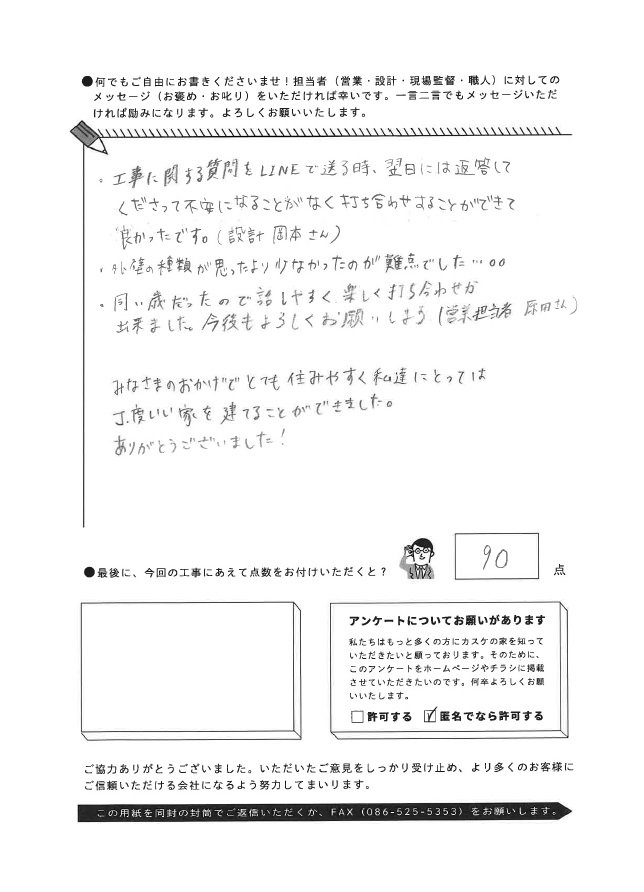 ●何でもご自由にお書きくださいませ！担当者（営業・設計・現場監督・職人）に対しての
メッセージ（お褒め・お叱り）をいただければ幸いです。一言二言でもメッセージいただ
ければ励みになります。よろしくお願いいたします。
・工事に関する質問をLINEで送る時、翌日には返答して
くださって不安になることがなく打ち合わせすることができて
良かったです。(設計 岡本さん)
・外壁の種類が思ったより少なかったのが難点でした…。。
・同い歳だったので話しやすく、楽しく打ち合わせが
出来ました。今後もよろしくお願いします。(営業担当者 原田さん)
みなさまのおかげでとても住みやすく私達にとっては
丁度いい家を建てることができました。
ありがとうございました！
●最後に、今回の工事にあえて点数をお付けいただくと？
90
点
アンケートについてお願いがあります
私たちはもっと多くの方にカスケの家を知って
いただきたいと願っております。そのために、
このアンケートをホームページやチラシに掲載
させていただきたいのです。何卒よろしくお願
いいたします。
□許可する ☑匿名でなら許可する
ご協力ありがとうございました。いただいたご意見をしっかり受け止め、より多くのお客様に
ご信頼いただける会社になるよう努力してまいります。
この用紙を同封の封筒でご返信いただくか、FAX（086-525-5353）をお願いします。